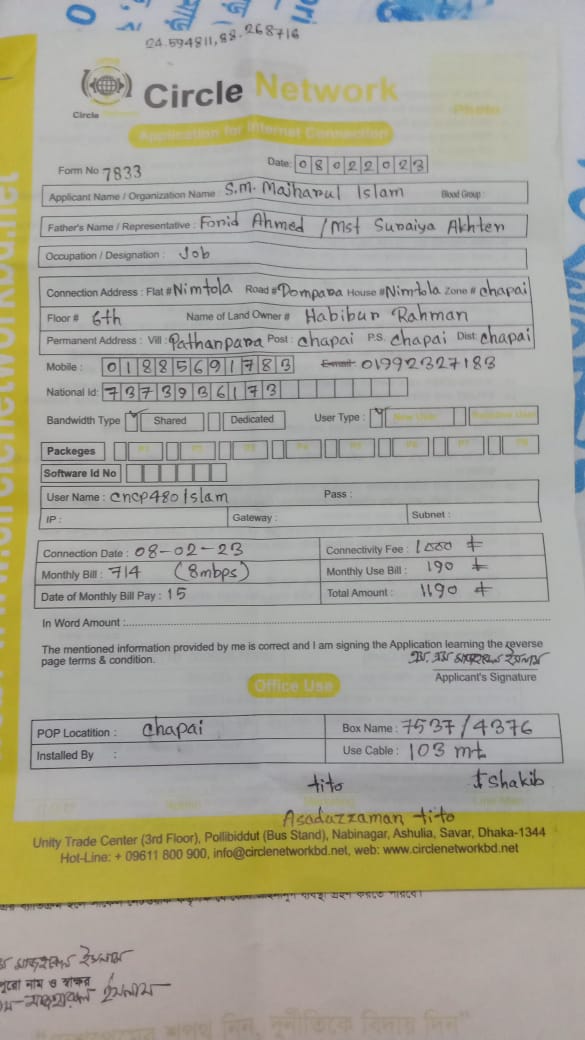 24.594811,88.268716
Circle Network
Circle
Photo
Application for Internet Connection
Form No 7833 Date: 08022023
Applicant Name / Organization Name : S.m. Majharul Islam Blood Group :
Father's Name / Representative : Forid Ahmed / Mst Suraiya Akhter
Occupation / Designation : Job
Connection Address : Flat # Nimtola Road # Dompara House # Nimtola Zone # chapai
Floor # 6th Name of Land Owner # Habibur Rahman
Permanent Address : Vill : Pathanpara Post : chapai P.S. chapai Dist: chapai
Mobile : 01885691783 Email: 01992327183
National Id: 7373936173
Bandwidth Type Shared Dedicated User Type : New User
Packeges P1 P2 P3 P4 P5 P6 P7 P8
Software Id No
User Name : cncp480Islam Pass :
IP : Gateway : Subnet :
Connection Date : 08-02-23 Connectivity Fee : 1000 ৳
Monthly Bill : 714 (8mbps) Monthly Use Bill : 190 ৳
Date of Monthly Bill Pay : 15 Total Amount : 1190 ৳
In Word Amount :
The mentioned information provided by me is correct and I am signing the Application learning the reverse
page terms & condition.
Applicant's Signature
Office Use
POP Locatition : chapai Box Name : 7537/4376
Installed By : Use Cable : 103 mt
tito Shakib
Asaduzzaman tito
Unity Trade Center (3rd Floor), Pollibiddut (Bus Stand), Nabinagar, Ashulia, Savar, Dhaka-1344
Hot-Line: + 09611 800 900, info@circlenetworkbd.net, web: www.circlenetworkbd.net
পুরো নাম ও স্বাক্ষর